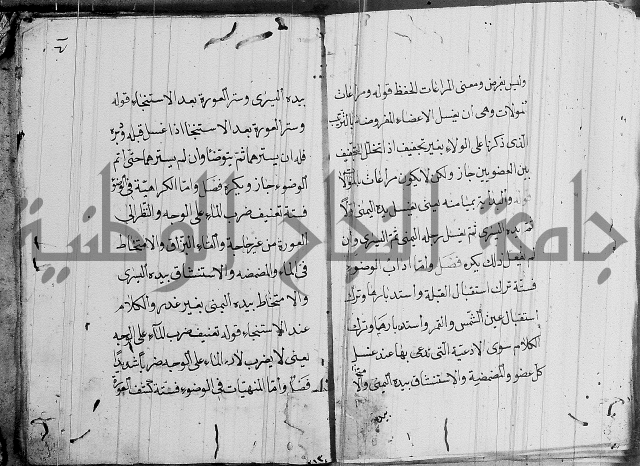 وليس بفرض ومعنى المراغات الحفظ قوله ومراغات
المولات وهي أن يغسل الاعضاء المفروضة بالترتيب
الذى ذكرنا على الولاء بغير تجفيف اذا تخلل التجفيف
بين العضوين جاز ولكن لا يكون مراغات بالمولات
قوله والبداية بميامنه يعنى يغسل يده اليمنى اولا
ثم يده اليسرى ثم يغسل رجله اليمنى ثم اليسرى وان
لم يفعل ذلك يكره فصل واما اداب الوضوء
فستة ترك استقبال القبلة واستدبارها وترك
استقبال عين الشمس والقمر واستدبارها وترك
الكلام سوى الادعية التى تدعى بها عند غسل
كل عضو والمضمضة والاستنشاق بيده اليمنى والامتخاط
بيده
بيده اليسرى وستر العورة بعد الاستنجاء قوله
وستر العورة بعد الاستنجا اذا غسل قبله ودبره
فله ان يسترهما ثم يتوضأ وان لم يسترهما حتى اتم
الوضوء جاز ويكره فصل واما الكراهية فى الوضوء
فستة تعنيف ضرب الماء على الوجه والنظر الى
العورة من غير حاجة والقاء البزاق والامتخاط
فى الماء والمضمضه والاستنشاق بيده اليسرى
والامتخاط بيده اليمنى بغير عذر والكلام
عند الاستنجاء قوله تعنيف ضرب الماء على الوجه
يعنى لا يضرب الماء على الوجه ضربا شديدا
فصل واما المنهيات فى الوضوء فستة كشف العورة
جامعة النجاح الوطنية